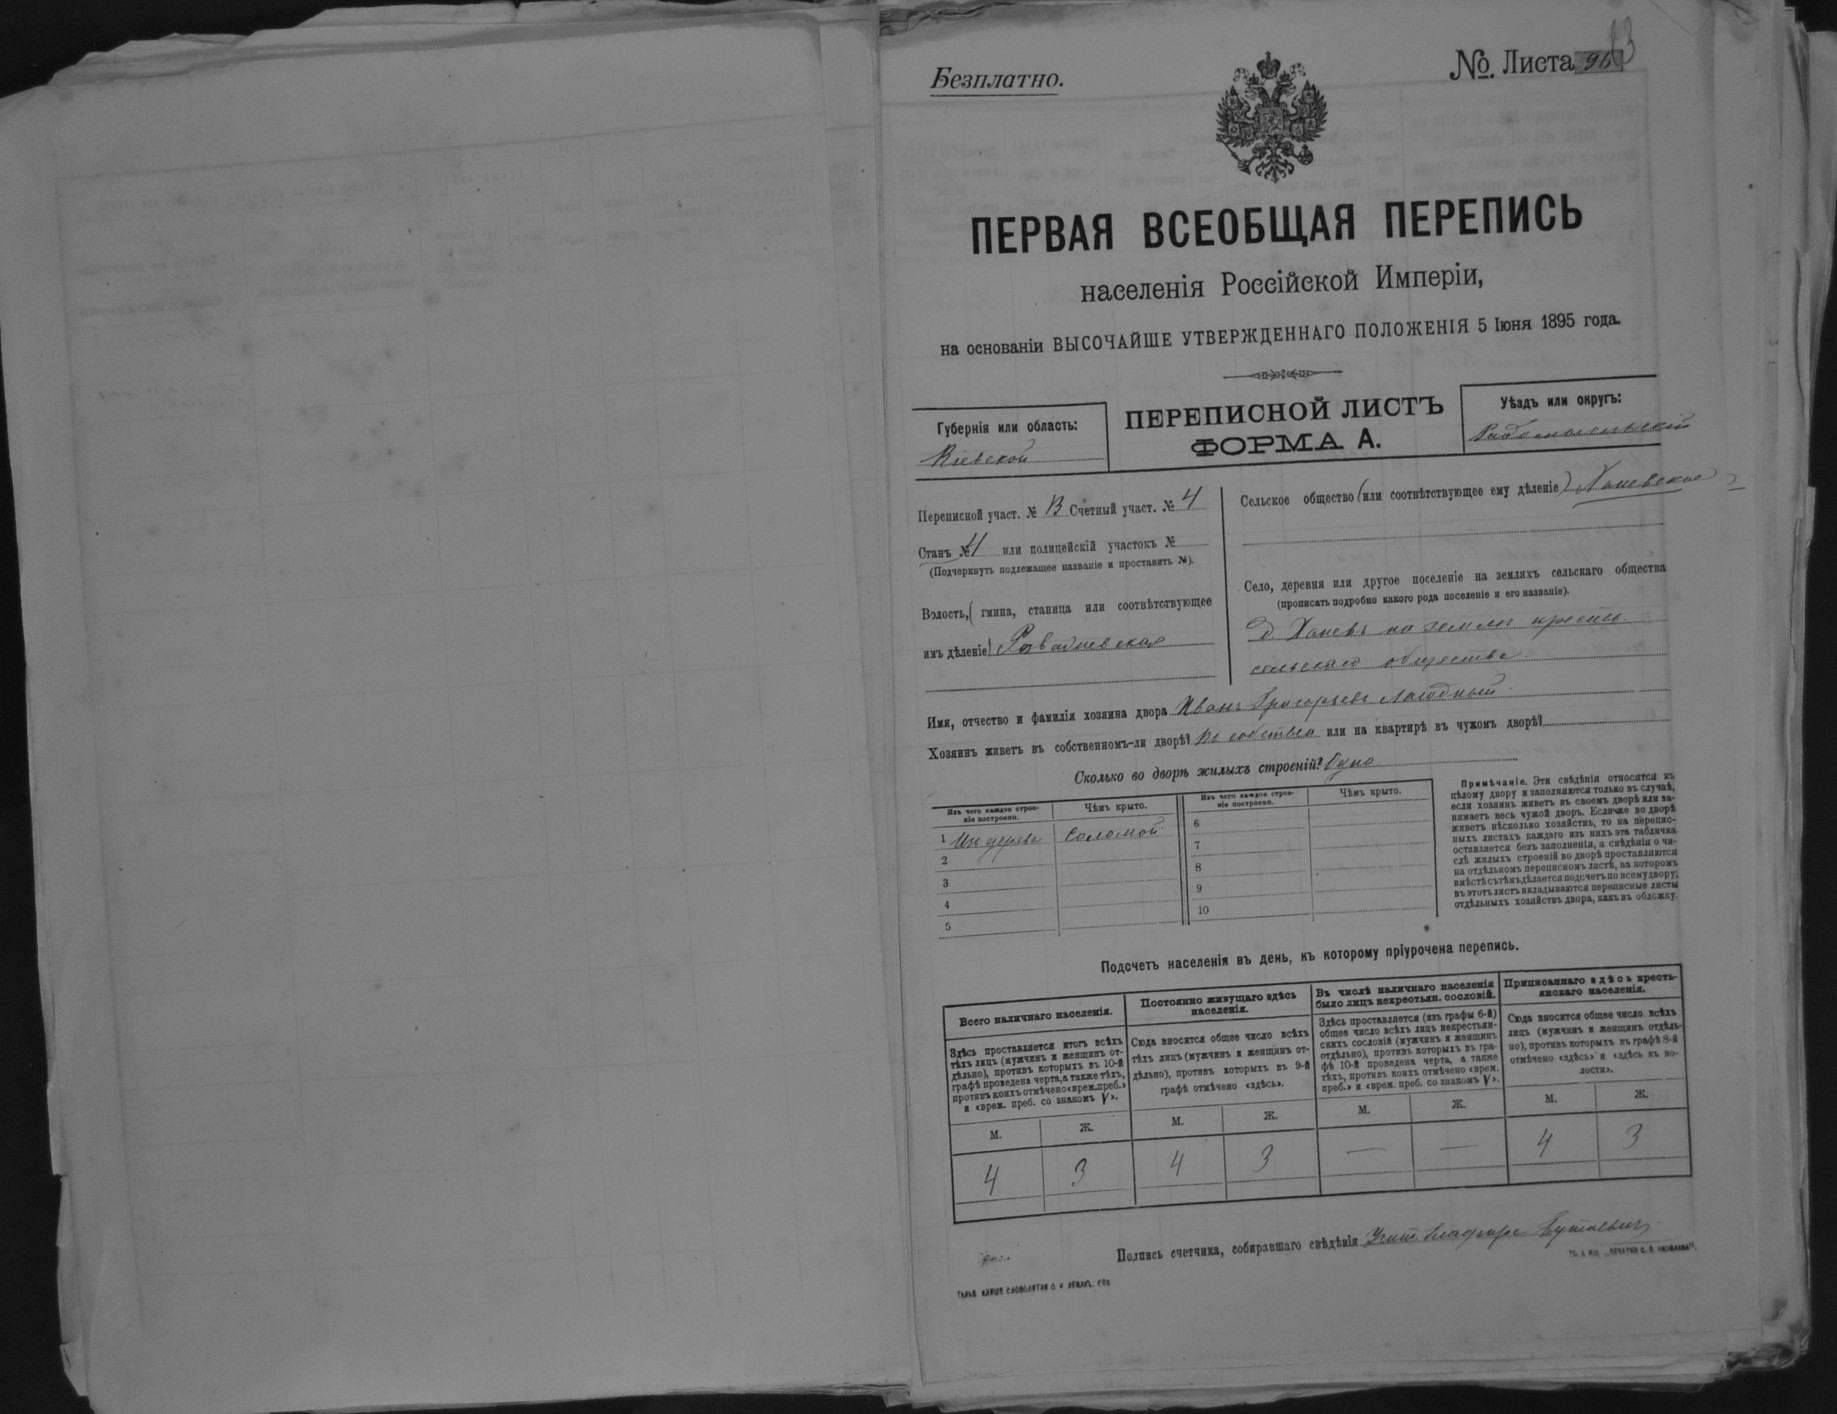 Безплатно.
№. Листа 96
ПЕРВАЯ ВСЕОБЩАЯ ПЕРЕПИСЬ
населенія Россійской Имперіи,
на основаніи ВЫСОЧАЙШЕ УТВЕРЖДЕННАГО ПОЛОЖЕНІЯ 5 Іюня 1895 года.
Губернія или область:
Кіевской
ПЕРЕПИСНОЙ ЛИСТЪ
ФОРМА А.
Уѣздъ или округъ:
Радомысльскій
Переписной участ. № В Счетный участ. № 4
Станъ № 4 или полицейскій участокъ №
(Подчеркнуть подлежащее названіе и проставить №).
Волость, (гмина, станица или соотвѣтствующее
имъ дѣленіе)
Сельское общество (или соотвѣтствующее ему дѣленіе) Ханевское
Село, деревня или другое поселеніе на земляхъ сельскаго общества
(прописать подробно какого рода поселеніе и его названіе).
д Ханевъ на земли
сельскаго общества
Имя, отчество и фамилія хозяина двора Иванъ Григорьевъ Лагодный
Хозяинъ живетъ въ собственномъ-ли дворѣ? Въ собствен или на квартирѣ въ чужомъ дворѣ?
Сколько во дворѣ жилыхъ строеній? Одно
Изъ чего каждое строе-
ніе построено.
Чѣмъ крыто.
Изъ чего каждое строе-
ніе построено.
Чѣмъ крыто.
1 Изъ дерева Соломой
2
3
4
5
6
7
8
9
10
Примѣчаніе. Эти свѣдѣнія относятся къ
цѣлому двору и заполняются только въ случаѣ,
если хозяинъ живетъ въ своемъ дворѣ или за-
нимаетъ весь чужой дворъ. Если же во дворѣ
живетъ нѣсколько хозяйствъ, то на перепис-
ныхъ листахъ каждаго изъ нихъ эта табличка
оставляется безъ заполненія, а свѣдѣнія о чи-
слѣ жилыхъ строеній во дворѣ проставляются
на отдѣльномъ переписномъ листѣ, на которомъ
вмѣстѣ съ тѣмъ дѣлается подсчетъ по всему двору;
въ этотъ листъ вкладываются переписные листы
отдѣльныхъ хозяйствъ двора, какъ въ обложку.
Подсчетъ населенія въ день, къ которому пріурочена перепись.
Всего наличнаго населенія.
Здѣсь проставляется итогъ всѣхъ
тѣхъ лицъ (мужчинъ и женщинъ от-
дѣльно), противъ которыхъ въ 10-й
графѣ проведена черта, а также тѣхъ,
противъ коихъ отмѣчено «врем. преб.»
и «врем. преб. со знакомъ V».
Постоянно живущаго здѣсь
населенія.
Сюда вносится общее число всѣхъ
тѣхъ лицъ (мужчинъ и женщинъ от-
дѣльно), противъ которыхъ въ 9-й
графѣ отмѣчено «здѣсь».
Въ числѣ наличнаго населенія
было лицъ некрестьян. сословій.
Здѣсь проставляется (изъ графы 6-й)
общее число всѣхъ лицъ некрестьян-
скихъ сословій (мужчинъ и женщинъ
отдѣльно), противъ которыхъ въ гра-
фѣ 10-й проведена черта, а также
тѣхъ, противъ коихъ отмѣчено «врем.
преб.» и «врем. преб. со знакомъ V».
Приписаннаго здѣсь кресть-
янскаго населенія.
Сюда вносится общее число всѣхъ
лицъ (мужчинъ и женщинъ отдѣль-
но), противъ которыхъ въ графѣ 8-й
отмѣчено «здѣсь» и «здѣсь въ во-
лости».
М. Ж. М. Ж. М. Ж. М. Ж.
4 3 4 3 — — 4 3
Подпись счетчика, собиравшаго свѣдѣнія